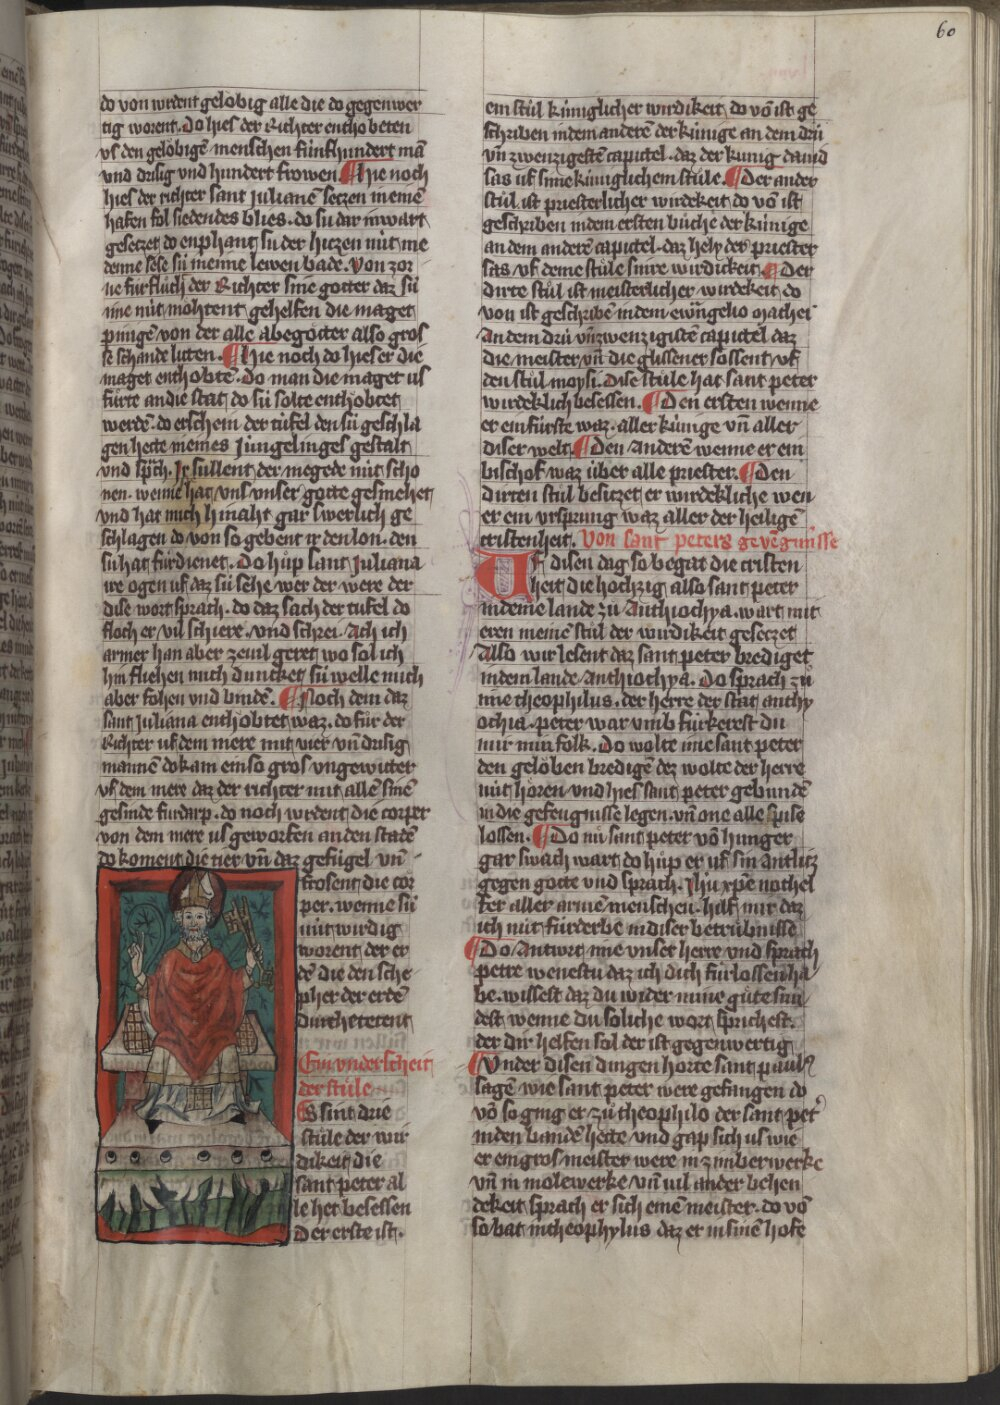 60
do von wrdent gelöbig alle die do gegenwer
tig worent. Do hies der Richter enthobeten
vs den gelöbigē menschen fúnfhundert mā
vnd drisig vnd hundert frowen. ¶ Hie noch
hies der richter sant Julianē seczen in einē
hafen fol siedendes blies. do sú dar in wart
geseczet do enphant sú der hiczen nút me
denne sese sú in eime lewen bade. Von zor
ne fúrflůch der Richter sine gotter daz sú
ime nút mohtent gehelfen die maget
pinigē von der alle abegötter also gros
se schande litten. ¶ Hie noch do hies er die
maget enthobtē. Do man die maget us
fůrte an die stat do sú solte enthobtet
werdē. do erschein der túfel den sú geschla
gen hette in eimes Jungelinges gestalt
vnd sp̄ch. Ir sullent der megede nút scho
nen. wenne hat vns vnser gotte gesmehet
vnd hat mich hinaht gar swerlich ge
schlagen do von so gebent ir den lon. den
sú hat fúrdienet. Do hůp sant Juliana
ire ogen uf daz sú sehe wer der were der
dise wort sprach. do daz sach der túfel do
floch er vil schiere. vnd schrei. Ach ich
armer han aber zevil geret wo sol ich
hin fliehen mich duncket sú welle mich
aber fohen vnd bindē. ¶ Noch dem daz
sant Juliana enthobtet waz. do fůr der
Richter uf dem mere mit vier vn̄ drisig
mannē do kam ein so gros vngewitter
vf dem mere daz der richter mit allē sinē
gesinde furdarp. do noch wrdent die cörper
von dem mere us geworfen an den stadē
do koment die tier vn̄ daz gefúgel vn̄
frosent die cör
per. wenne sú
nút wirdig
worent der er
dē die den sche
pher der erdē
durchetetent
Ein vnderscheit
der stůle
Es sint drie
stůle der wir
dikeit die
sant peter al
le het besessen
Der erste ist.
ein stůl kúniglicher wirdikeit do vō ist ge
schriben in dem anderē der kúnige an dem drú
vn̄ zwenzigestē capittel. daz der kúnig dauid
sas uf sime kúniglichem stůle. ¶ Der ander
stůl ist priesterlicher wirdekeit do vō ist
geschriben in dem ersten bůche der kúnige
an dem anderē capittel. daz hely der priester
sas vf deme stůle sinre wirdickeit. ¶ Der
dirte stůl ist meisterlicher wirdekeit do
von ist geschribē in dem ewāngelio Mathei
An dem drú vn̄ zwenzigistē capittel daz
die meister vn̄ die glissener sossent vf
den stůl moysi. Dise stůle hat sant peter
wirdeklich besessen. ¶ Den ersten wenne
er ein fúrste waz. aller kúnige vn̄ aller
diser welt. ¶ Den Anderē wenne er ein
bischof waz úber alle priester. ¶ Den
dirten stůl besitzet er wirdekliche wen
er ein vrsprung waz aller der heiligē
cristenheit. Von sant peters gevēgnisse
Uf disen dag so begat die cristen
heit die hochzig also sant peter
in deme lande zů Anthiochya. wart mit
eren in einē stůl der wirdikeit geseczet
Also wir lesent daz sant peter brediget
in dem lande Anthiochya. Do sprach zů
ime theophilus. der herre der stat anthy
ochia. peter war vmb fúrkerest du
mir min folk. Do wolte ime sant peter
den gelöben bredigē dez wolte der herre
nút hören vnd hies sant peter gebundē
in die gefengnisse legen. vn̄ one alle spise
lossen. ¶ Do nů sant peter vō hunger
gar swach wart do hůp er uf sin Antlitz
gegen gotte vnd sprach. Jhū xp̄e nothel
fer aller armē menschen. hilf mir daz
ich nút fúrderbe in diser betrúbnisse
¶ Do Antwort ime vnser herre vnd sprach
petre wenestu daz ich dich fúrlossen ha
be. wissest daz du wider mine gůte sún
dest wenne du soliche wort sprichest.
der dir helfen sol der ist gegenwertig
¶ Vnder disen dingen horte sant paulꝰ
sagē wie sant peter were gefangen do
vō so ging er zů theophilo der sant pet̓
in den bandē hette vnd gap sich us wie
er ein gros meister were in zimberwerke
vn̄ in molewerke vn̄ uil ander behen
dekeit sprach er sich einē meister. do vō
so bat in theophylus daz er in sinē hofe